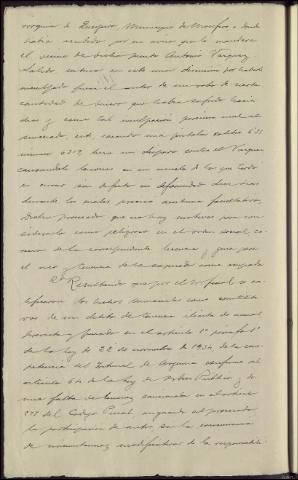 parroquia de Bergiño, Municipio de Monfero, donde
había acudido por un aviso que le mandara
el vecino de dicho punto Antonio Vázquez
Salido, entraron en este una discusión por haberle
inculpado fuera el autor de un robo de cierta
cantidad de dinero que había sufrido hacía
días y como tal inculpación provino mal al
procesado, este, sacando una pistola calibre 6'35
número 6312, hizo un disparo contra el Vázquez
causándole lesiones en un muslo de las que tardó
en curar sin defecto ni deformidad diez días
durante los cuales precisó asistencia facultativa.
Dicho procesado que no hay motivos para con-
siderarlo como peligroso en el orden social, ca-
rece de la correspondiente licencia y guía para
el uso y tenencia de la expresada arma ocupada
Resultando que por el Sr. Fiscal se ca-
lificaron los hechos enunciados como constituti-
vos de un delito de tenencia ilícita de armas
previsto y penado en el artículo 1º párrafo 1º
de la Ley de 22 de noviembre de 1934 de la com-
petencia del Tribunal de Urgencia conforme al
artículo 64 de la Ley de Orden Público, y de
una falta de lesiones sancionada en el artículo
577 del Código Penal, imputando al procesado
la participación de autor, sin la concurrencia
de circunstancias modificativas de la responsabili-